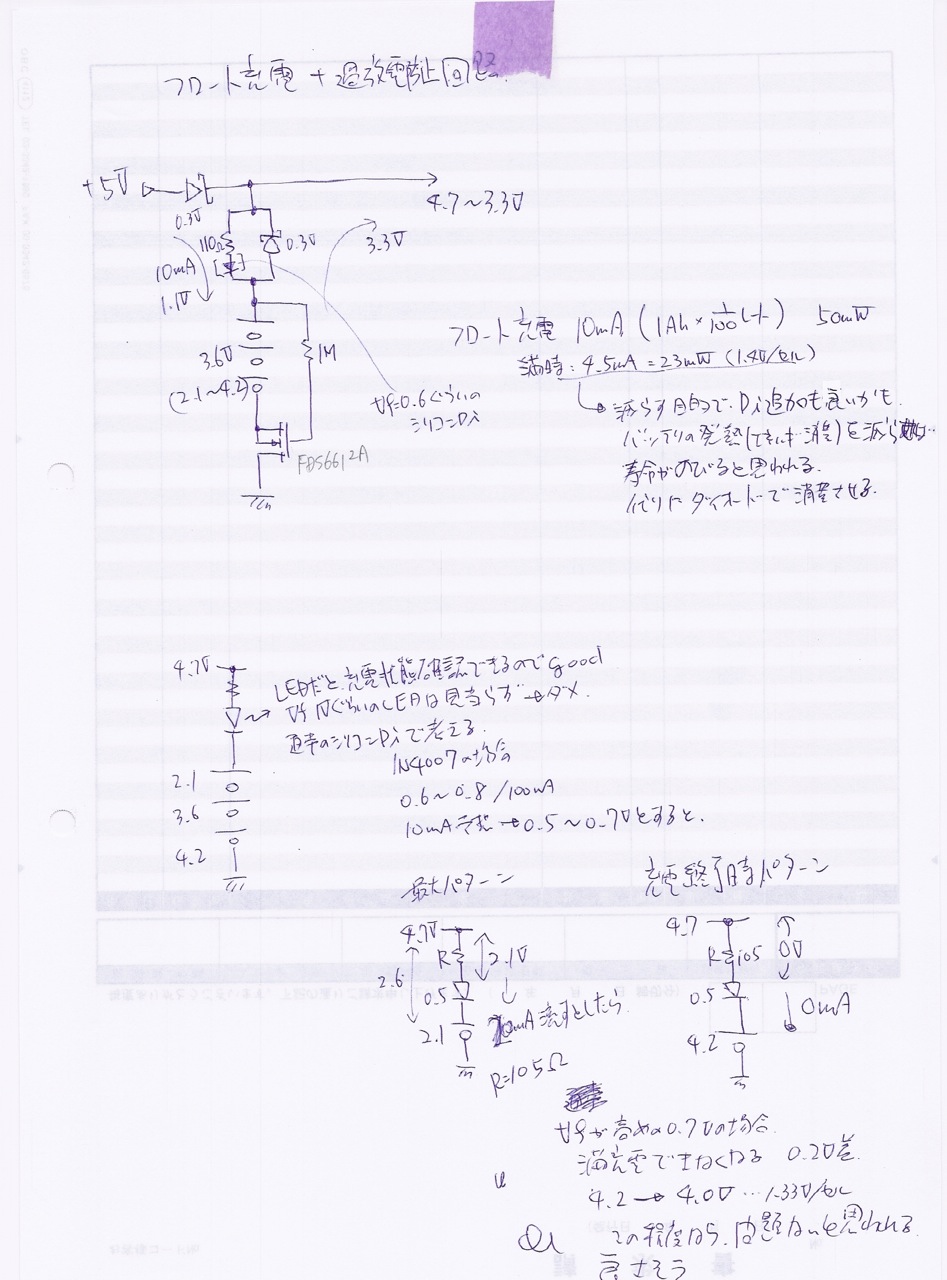 フロート充電 + 過放電防止回路
+5V
0.3V
4.7〜3.3V
110Ω
0.3V
3.3V
10mA
1.1V
3.6V
(2.1〜4.2)
1M
FDS6612A
Vf=0.6ぐらいの
シリコンDi
フロート充電 10mA (1Ah×1/100レート) 50mW
満時: 4.5mA=23mW (1.4V/セル)
減らす目的で、Di追加も良いかも。
バッテリの発熱 消費)を減らせば…
寿命がのびると思われる。
代りにダイオードで消費させる。
4.7V
LEDだと、充電状態確認できるのでgood
Vf 1VぐらいのLEDは見当らず→ダメ
通常のシリコンDiで考える。
2.1
3.6
4.2
1N4007の場合
0.6〜0.8/100mA
10mA →0.5〜0.7Vとすると、
最大パターン
4.7V
R
2.1V
2.6
0.5
2.1
20mA流すとしたら
R=105Ω
充電終了時パターン
4.7
R 105
0V
0.5
0mA
4.2
Vfが高めの0.7Vの場合
満充電できなくなる 0.2V差
4.2→4.0V…1.33V/セル
この程度なら、問題ないと思われる
良さそう